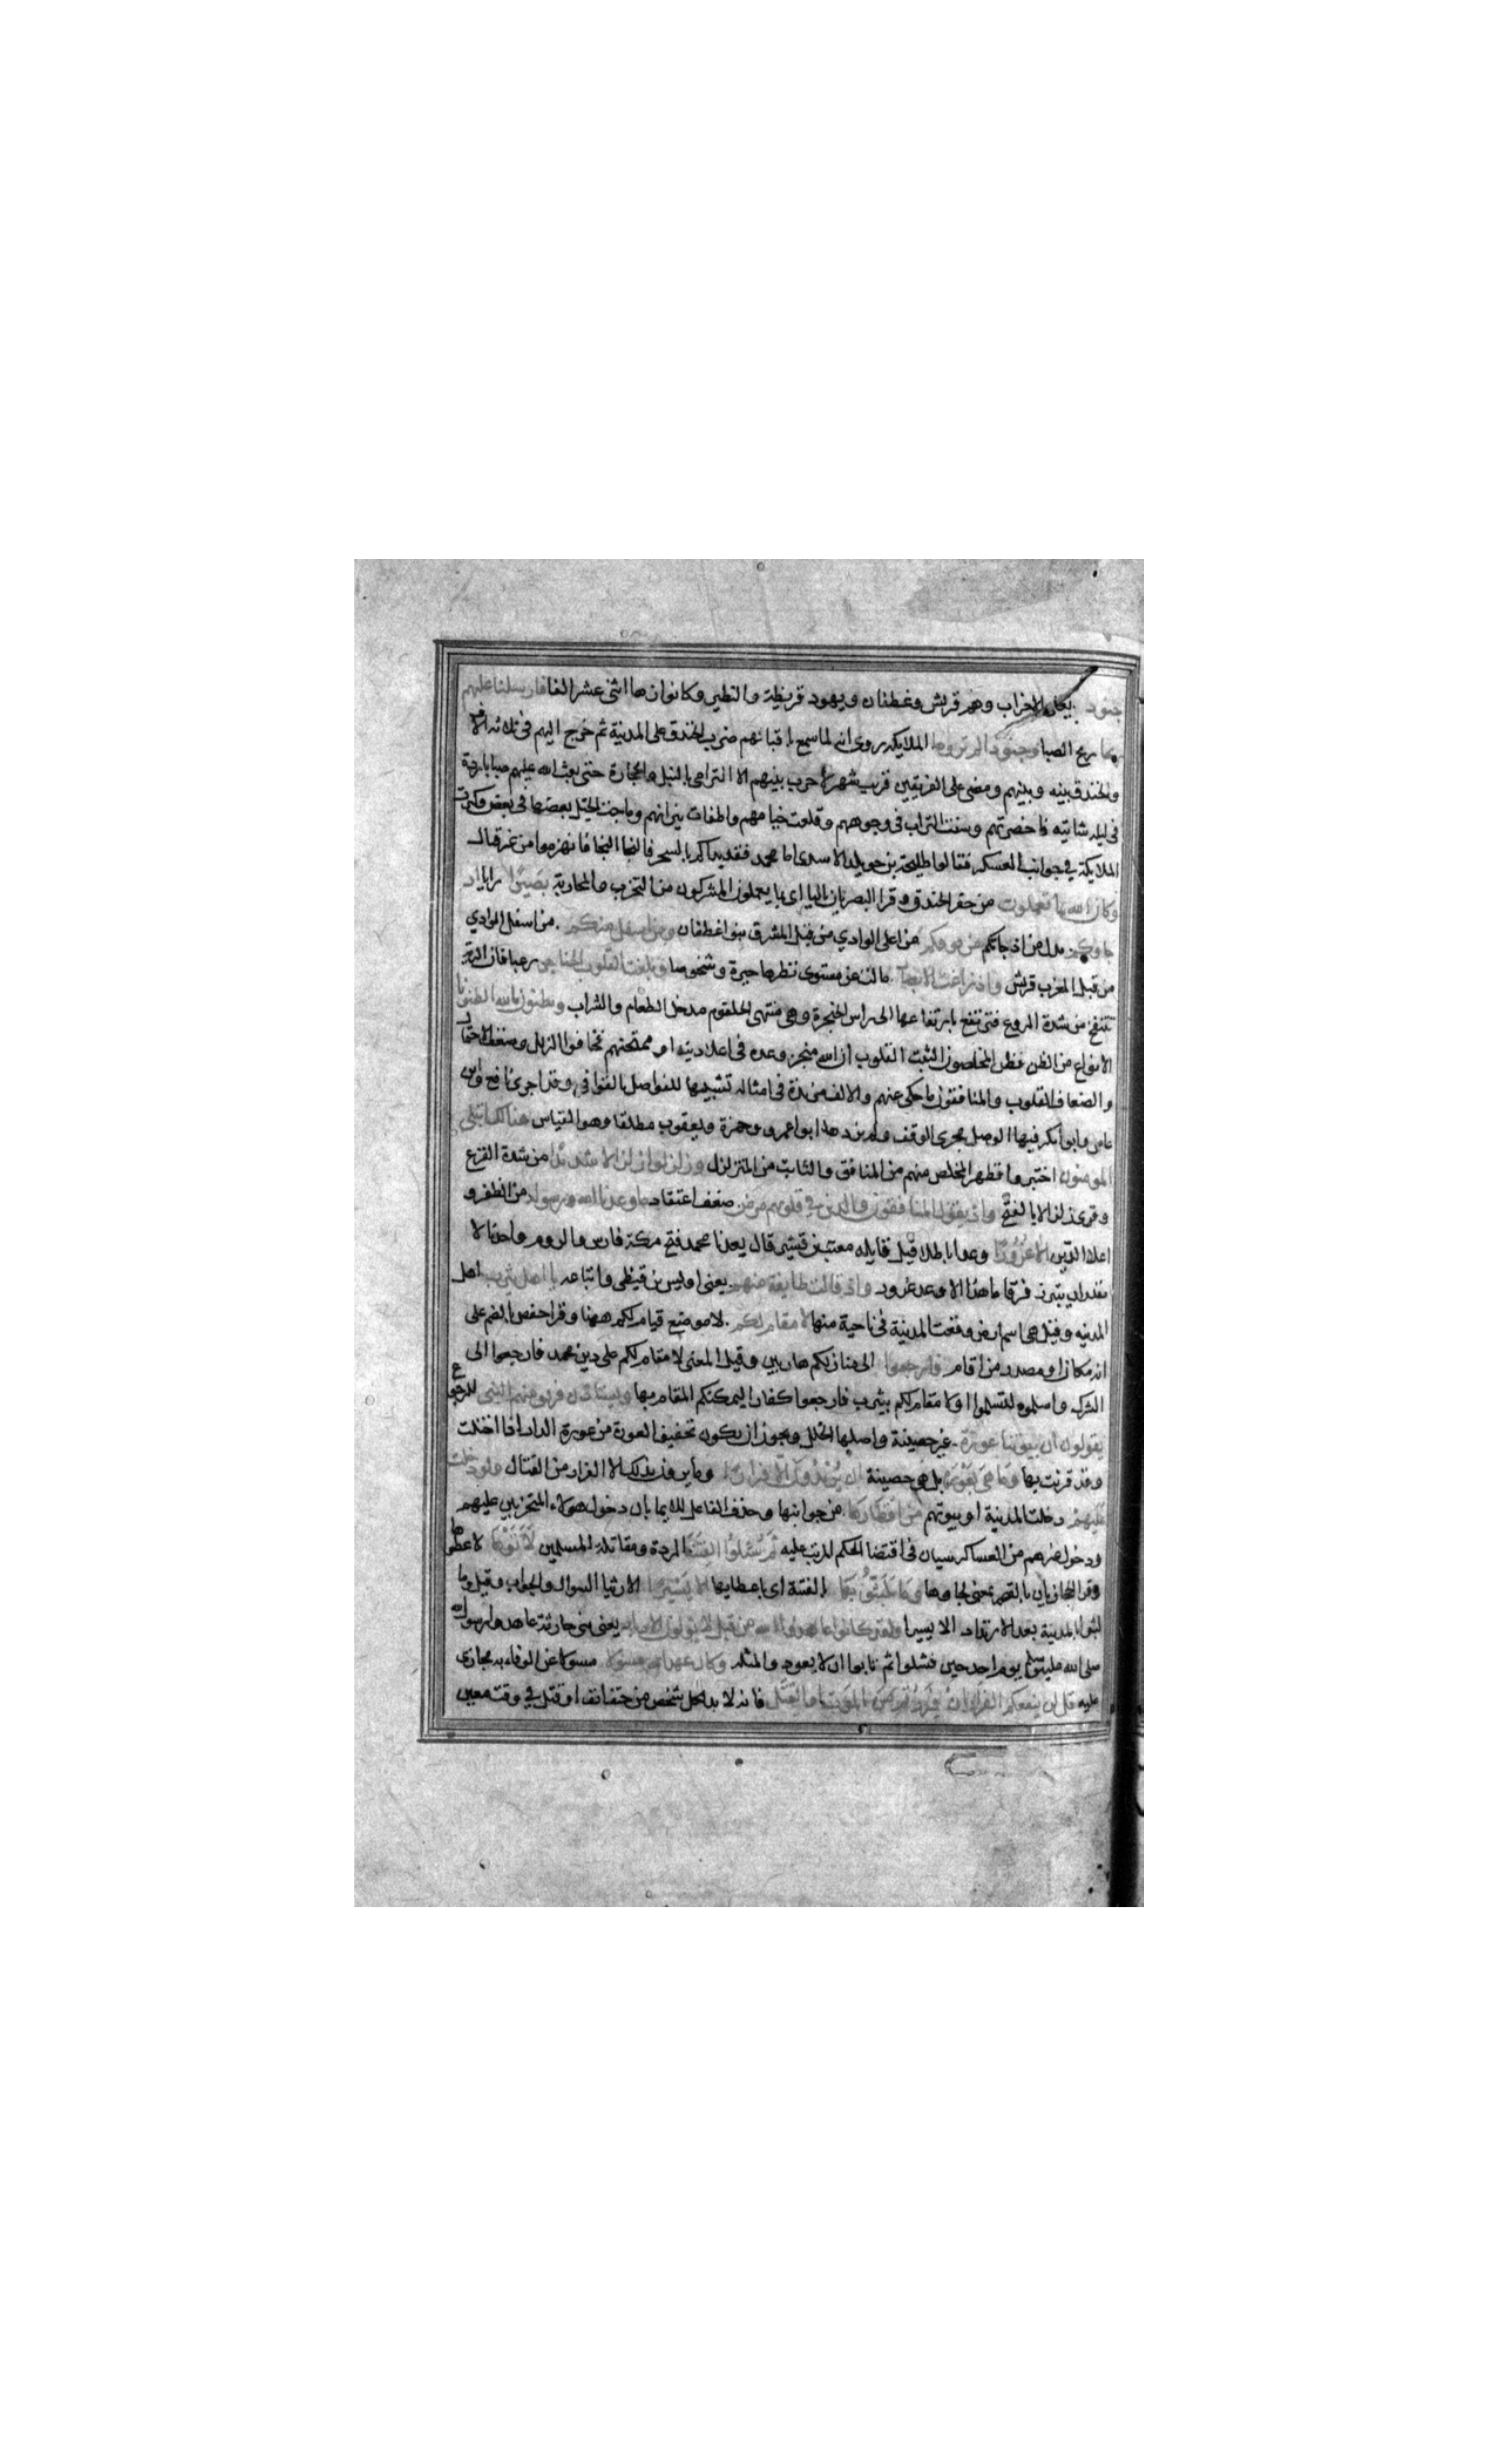 جنود يعني الاحزاب وهم قريش وغطفان ويهود قريظة والنظير وكانوا زها اثنى عشر الفا فارسلنا عليهم
ريحا ريح الصبا وجنودا لم تروها الملايكة روى انه لما سمع باقبالهم ضرب الخندق على المدنية ثم خرج اليهم في ثلاثه الاف
والخندق بينه وبينهم ومضى على الفريقين قرب شهر لا حرب بينهم الا الترامى بالنبل والحجارة حتى بعث الله عليهم صبا باردة
في ليلة شاتيه فاخصرتهم وسفت التراب في وجوههم وقلعت خيامهم واطفات نيرانهم وماجت الخيل بعضها في بعض وكبرت
الملايكة في جوانب العسكر فقال طليحة بن خويلد الاسدى اما محمد فقد بداكم بالسحر فالنجا النجا فانهزموا من غير قتال
وكان الله بما تعملون من حفر الخندق وقرا البصريان باليا اى بما يعملون المشركون من التحزب والمحاربة بصيرا رايا اذ
جاوكم بدل من اذ جاتكم من فوقكم من اعلى الوادي من قبل المشرق بنوا غطفان ومن اسفل منكم من اسفل الوادي
من قبل المغرب قريش واذ زاغت الابصار مالت عن مستوى نظرها حيرة وشخوصا وبلغت القلوب الحناجر رعبا فان الرية
تنتفخ من شدة الروع فترتفع بارتفاعها الى راس الحنجرة وهى منتهى الحلقوم مدخل الطعام والشراب وتظنون بالله الظنونا
الانواع من الظن فظن المخلصون الثبت القلوب ان الله منجز وعده في اعلا دينه او ممتحنهم فخافوا الزلل وضعف الاحتمال
والضعاف القلوب والمنافقون ما حكى عنهم والالف مزيدة في امثاله تشبيها للفواصل بالقوافي وقد اجرى نافع وابن
عامر وابو بكر فيها الوصل مجرى الوقف ولم يزدها ابو اعمرو وحمزة ويعقوب مطلقا وهو القياس هنالك ابتلى
المومنون اختبروا فظهر المخلص منهم من المنافق والثابت من المتزلزل وزلزلوا زلزالا شديدا من شدة الفزع
وقرئ زلزالا بالفتح واذ يقول المنافقون والذين في قلوبهم مرض ضعف اعتقاد ما وعدنا الله ورسوله من الظفر و
اعلا الدين الا غرورا وعدا باطلا قيل قايله معتب بن قشير قال يعدنا محمد فتح مكة فارس والروم واحدنا لا
يقدر ان يتبرز فرقا ما هذا الا وعد غرور واذ قالت طايفة منهم يعنى اوس بن قيظى واتباعه يا اهل يثرب اهل
المدنيه وقيل هى اسم ارض وقعت المدنية في ناحية منها لا مقام لكم لا موضع قيام لكم ههنا وقرا حفص بالضم على
انه مكان او مصدر من اقام فارجعوا الى منازلكم هاربين وقيل المعنى لا مقام لكم على دين محمد فارجعوا الى
الشرك واسلموه لتسلموا او لا مقام لكم بيثرب فارجعوا كفارا ليمكنكم المقام بها ويستاذن فريق منهم النبى للرجوع
يقولون ان بيوتنا عورة غير حصينة واصلها الخلل ويجوز ان يكون تخفيف العورة من عورة الدار اذا اختلت
وقد قرئت بها وما هى بعورة بل هى حصينة ان يريدون الا فرارا وما يريدون بذلك الا الفرار من القتال ولو دخلت
عليهم دخلت المدنية او بيوتهم من اقطارها من جوانبها وحذف الفاعل للايما بان دخول هولاء المتحزبين عليهم
ودخول غيرهم من العساكر سيان في اقتضا الحكم المرتب عليه ثم سئلوا الفتنة الردة ومقاتلة المسلمين لآتوها لاعطوها
وقرا الحجازيان بالقصر بمعنى لجاوها وما تلبثوا بها بالفتنة اى باعطايها الا يسيرا الا ريثما السوال والجواب وقيل وما
لبثوا بالمدنية بعد الارتداد الا يسيرا ولقد كانوا عاهدوا الله من قبل لا يولون الادبار يعنى بنى حارثة عاهدوا رسول الله
صلى الله عليه وسلم يوم احد حين فشلوا ثم تابوا ان لا يعودوا لمثله وكان عهد الله مسولا مسولا عن الوفاء به مجازى
عليه قل لن ينفعكم الفرار ان فررتم من الموت او القتل فانه لا بد لكل شخص من حتف انف او قتل في وقت معين